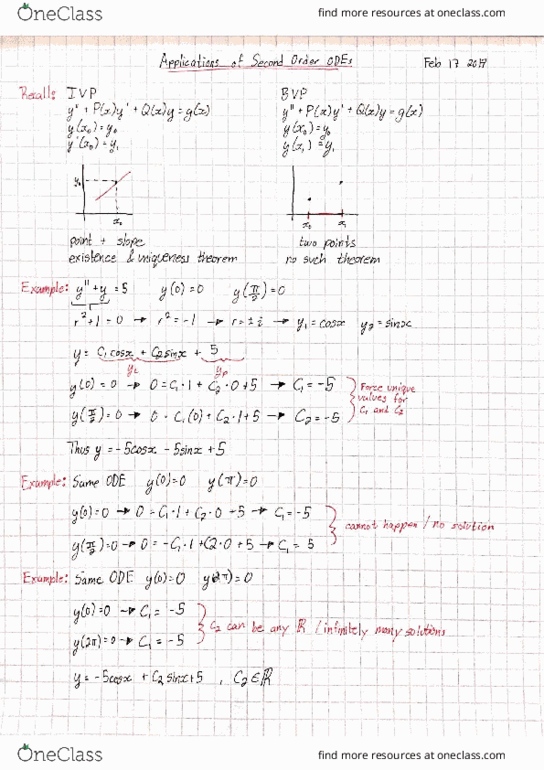 OneClass find more resources at oneclass.com
Applications of Second Order ODEs Feb 17 2017
Recall: IVP BVP
y" + P(x)y' + Q(x)y = g(x) y" + P(x)y' + Q(x)y = g(x)
y(x₀) = y₀ y(x₀) = y₀
y'(x₀) = y₁ y(x₁) = y₁
y₀
x₀ x₀ x₁
point + slope two points
existence & uniqueness theorem no such theorem
Example: y" + y = 5 y(0) = 0 y(π/2) = 0
r² + 1 = 0 → r² = -1 → r = ± i → y₁ = cosx y₂ = sinx
y = C₁cosx + C₂sinx + 5
yc yp
y(0) = 0 → 0 = C₁·1 + C₂·0 + 5 → C₁ = -5
y(π/2) = 0 → 0 = C₁(0) + C₂·1 + 5 → C₂ = -5
Force unique
values for
C₁ and C₂
Thus y = -5cosx - 5sinx + 5
Example: Same ODE y(0) = 0 y(π) = 0
y(0) = 0 → 0 = C₁·1 + C₂·0 + 5 → C₁ = -5
y(π/2) = 0 → 0 = -C₁·1 + C2·0 + 5 → C₁ = 5
cannot happen / no solution
Example: Same ODE y(0) = 0 y(2π) = 0
y(0) = 0 → C₁ = -5
y(2π) = 0 → C₁ = -5
C₂ can be any ℝ / infinitely many solutions
y = -5cosx + C₂ sinx + 5 , C₂ ∈ ℝ
OneClass find more resources at oneclass.com